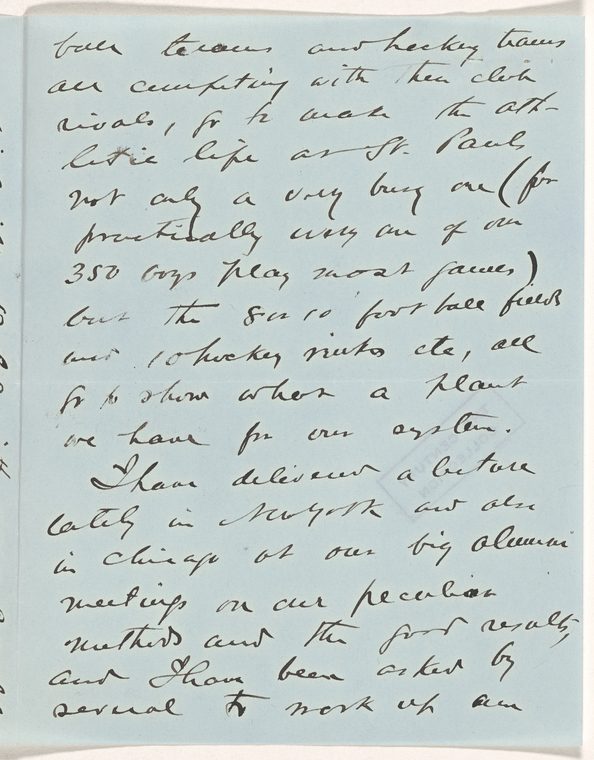 ball teams and hockey teams
all competing with their club
rivals, go to make the ath-
letic life at St. Pauls
not only a very busy one (for
practically every one of our
350 boys play most games)
but the 8 or 10 football fields
and 10 hockey rinks etc, all
go to show what a plant
we have for our system.
I have delivered a lecture
lately in New York and also
in Chicago at our big alumni
meetings on our peculiar
methods and the good results,
and I have been asked by
several to work up an